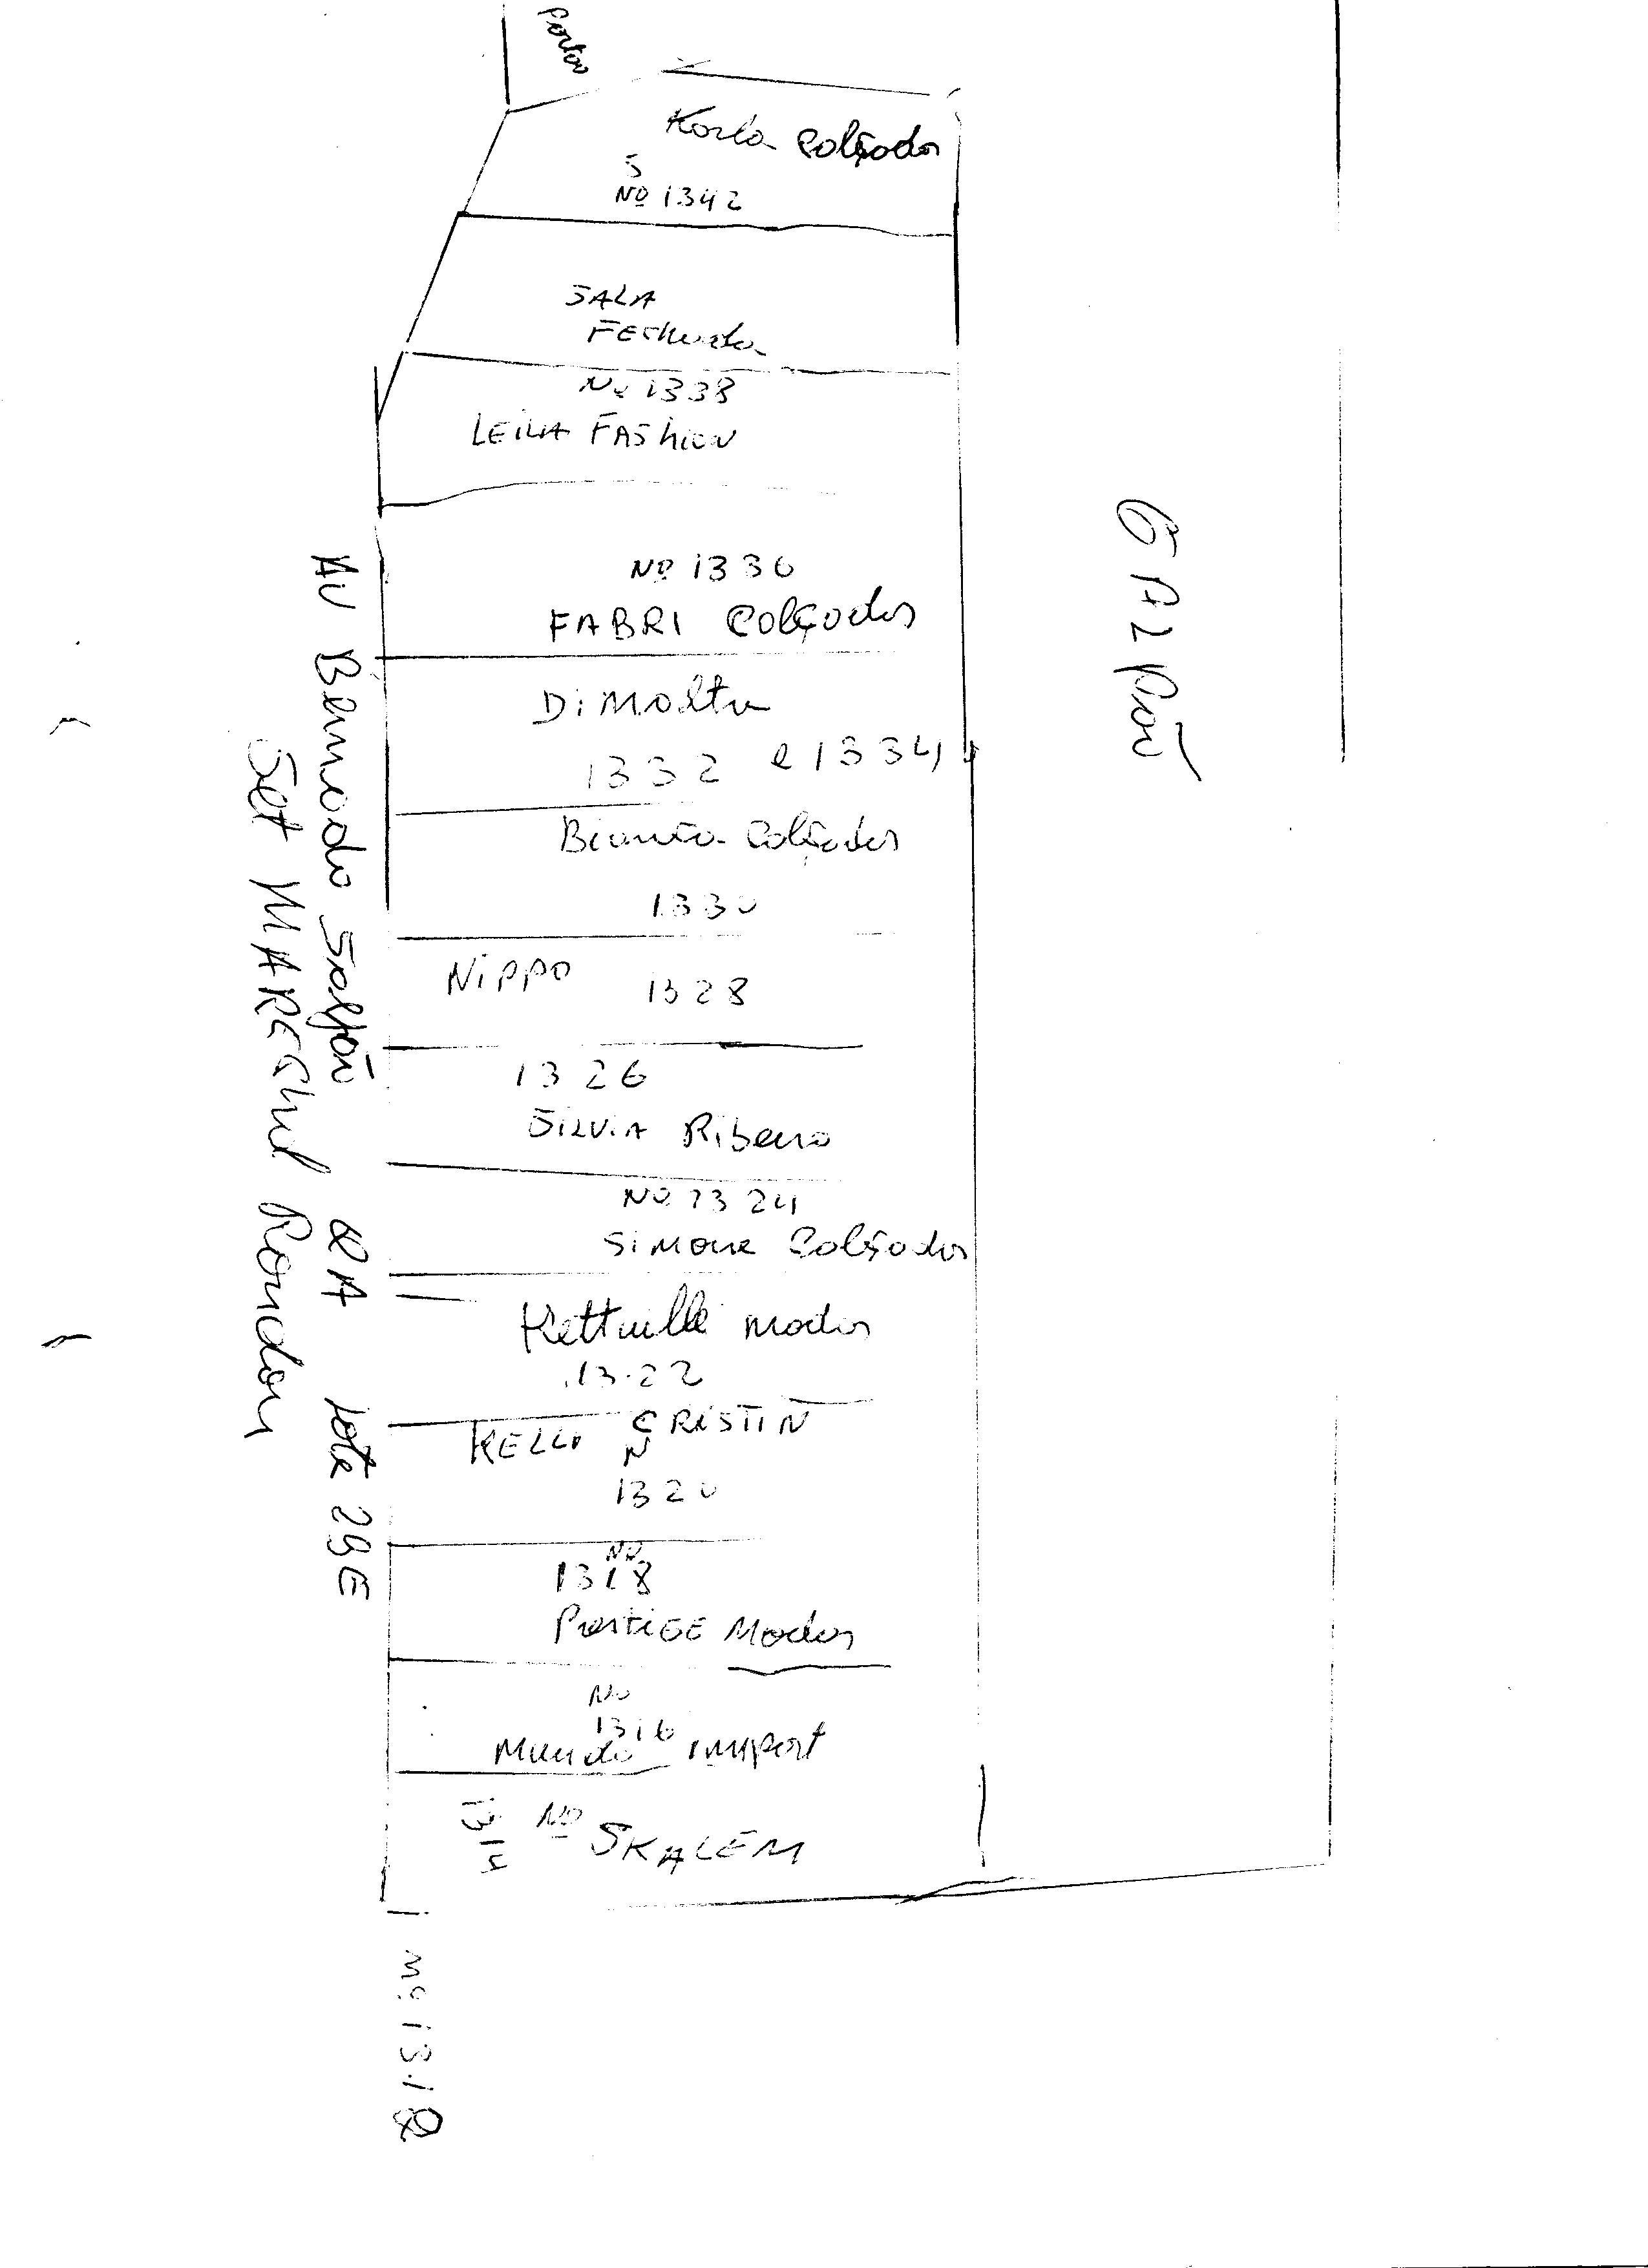 Portão
Karla Calçados
S
Nº 1342
SALA
FEchada
Nº 1338
LEILA FAShion
Nº 1336
FABRI Calçados
Di Malta
1332 e 1334
Bianca Calçados
1330
Nippo 1328
1326
SILVIA Ribeiro
Nº 1324
SiMone Calçados
modas
1322
KELLI CRISTIN
N
1320
Nº
1318
PrestiGE Modas
Nº
1316
Mundo import
1314 Nº SKALEM
Nº 1312
AV Bernardo Salão QA lote 29E
Set MAREChal Rondon
GALPÃO